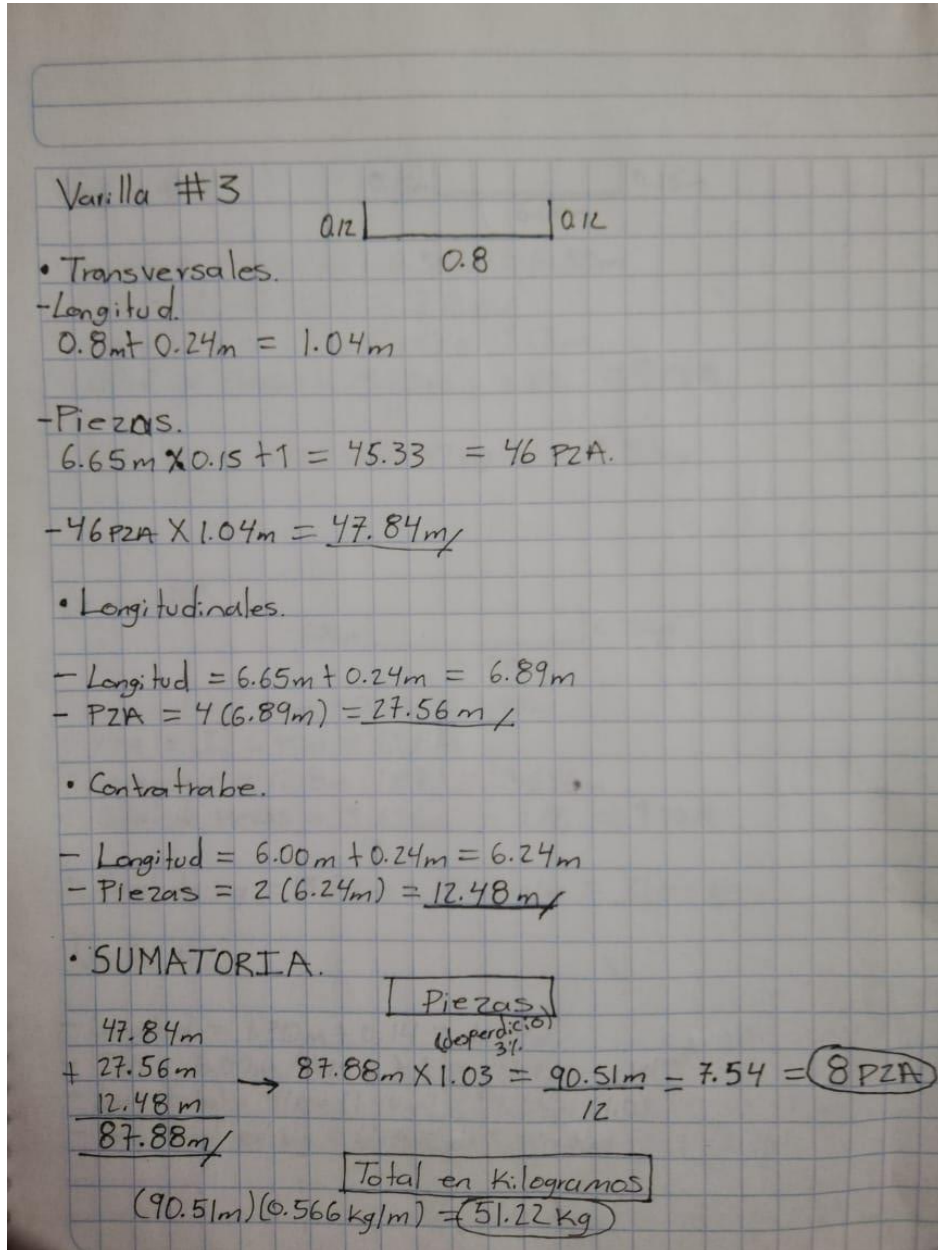 Varilla #3
0.12 0.12
0.8
• Transversales.
-Longitud.
0.8m+ 0.24m = 1.04m
-Piezas.
6.65m X 0.15 +1 = 45.33 = 46 PZA.
-46 PZA X 1.04m = 47.84m/
• Longitudinales.
- Longitud = 6.65m + 0.24m = 6.89m
- PZA = 4 (6.89m) = 27.56 m/
• Contratrabe.
- Longitud = 6.00m + 0.24m = 6.24m
- Piezas = 2 (6.24m) = 12.48 m/
• SUMATORIA.
Piezas
(desperdicio)
3%
47.84m
+ 27.56m → 87.88m X 1.03 = 90.51m = 7.54 = 8 PZA
12.48 m 12
87.88m/
Total en Kilogramos
(90.51m)(0.566 kg/m) = 51.22 Kg